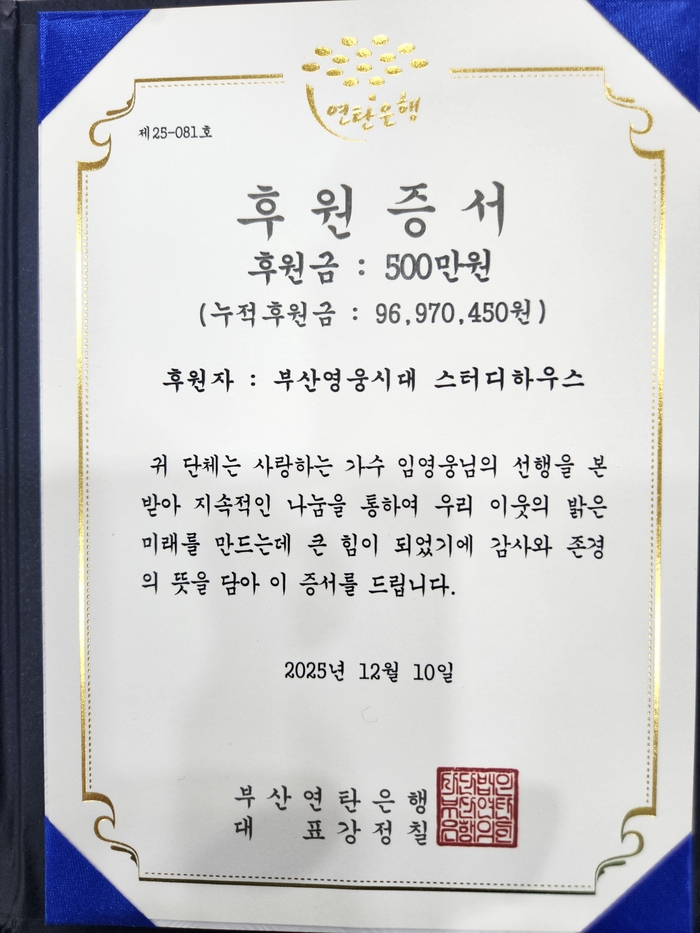 연탄은행
제25-081호
후원증서
후원금 : 500만원
(누적후원금 : 96,970,450원)
후원자 : 부산영웅시대 스터디하우스
귀 단체는 사랑하는 가수 임영웅님의 선행을 본
받아 지속적인 나눔을 통하여 우리 이웃의 밝은
미래를 만드는데 큰 힘이 되었기에 감사와 존경
의 뜻을 담아 이 증서를 드립니다.
2025년 12월 10일
부산연탄은행
대 표강정칠